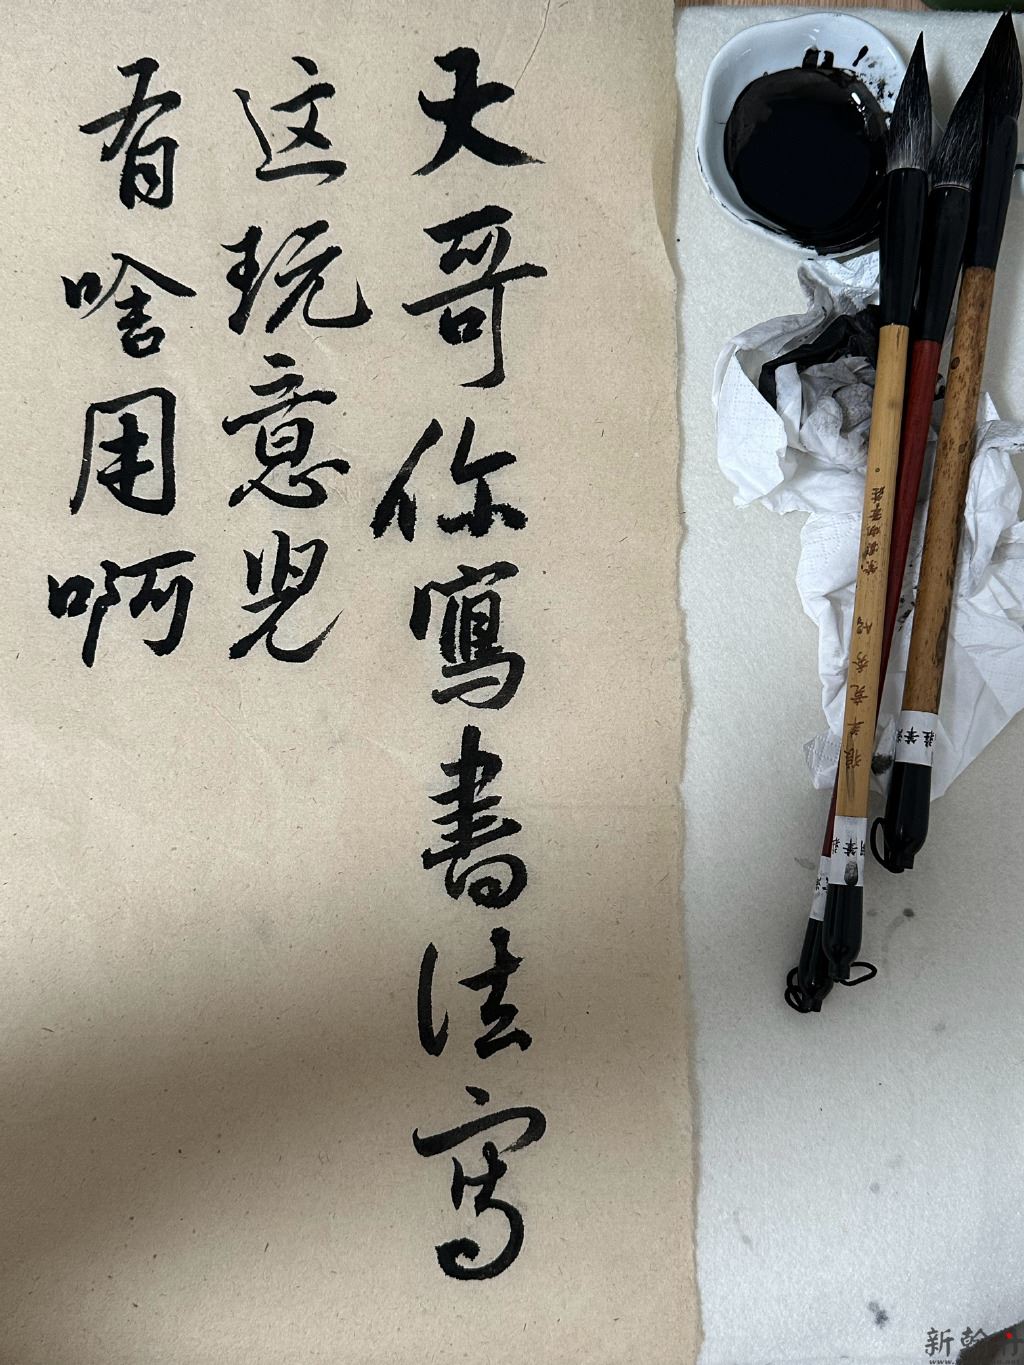 大哥你寫書法寫
这玩意兒
有啥用啊
新翰